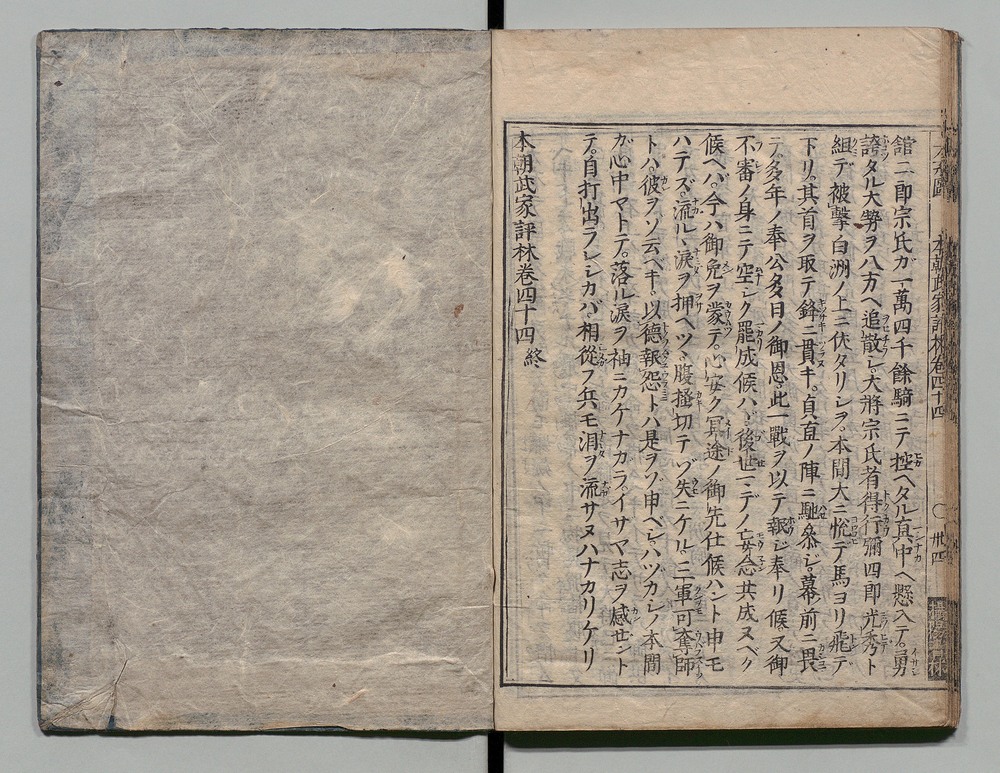 舘二郎宗氏ガ一萬四千餘騎ニテ控ヘタル眞中ヘ懸入テ。勇
誇タル大勢ヲ八方ヘ追散シ。大將宗氏者得行彌四郎光秀ト
組デ被撃ノ白洲ノ上ニ伏タリシヲ。本間大ニ悦テ馬ヨリ飛デ
下リ。其首ヲ取テ鋒ニ貫キ。貞直ノ陣ニ馳參ジ。幕前ニ畏
テ。多年ノ奉公多日ノ御恩。此一戰ヲ以テ報ジ奉リ候又御
不審ノ身ニテ空シク罷成候ハヾ。後世マデノ妄念共成ヌベク
候ヘバ。今ハ御免ヲ蒙テ。心安ク冥途ノ御先仕候ハント申モ
ハテズ。流ルヽ涙ヲ押ヘツヽ腹掻切テゾ失ニケル。三軍可奪師
トハ。彼ヲソ云ベキ。以德報怨トハ是ヲゾ申ベシ。ハヅカシノ本間
ガ心中マトテ。落ル涙ヲ袖ニカケナガラ。イサマ志ヲ感ゼント
テ。自打出ラレシカバ。相從フ兵モ泪ヲ流サヌハナカリケリ
本朝武家評林卷四十四 終
本朝武家評林卷四十四
〇 卅四